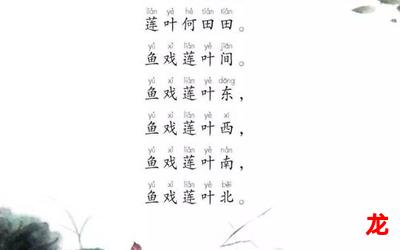 lián yè hé tián tián
莲叶何田田。
yú xì lián yè jiān
鱼戏莲叶间。
yú xì lián yè dōng
鱼戏莲叶东，
yú xì lián yè xī
鱼戏莲叶西，
yú xì lián yè nán
鱼戏莲叶南，
yú xì lián yè běi
鱼戏莲叶北。
龙